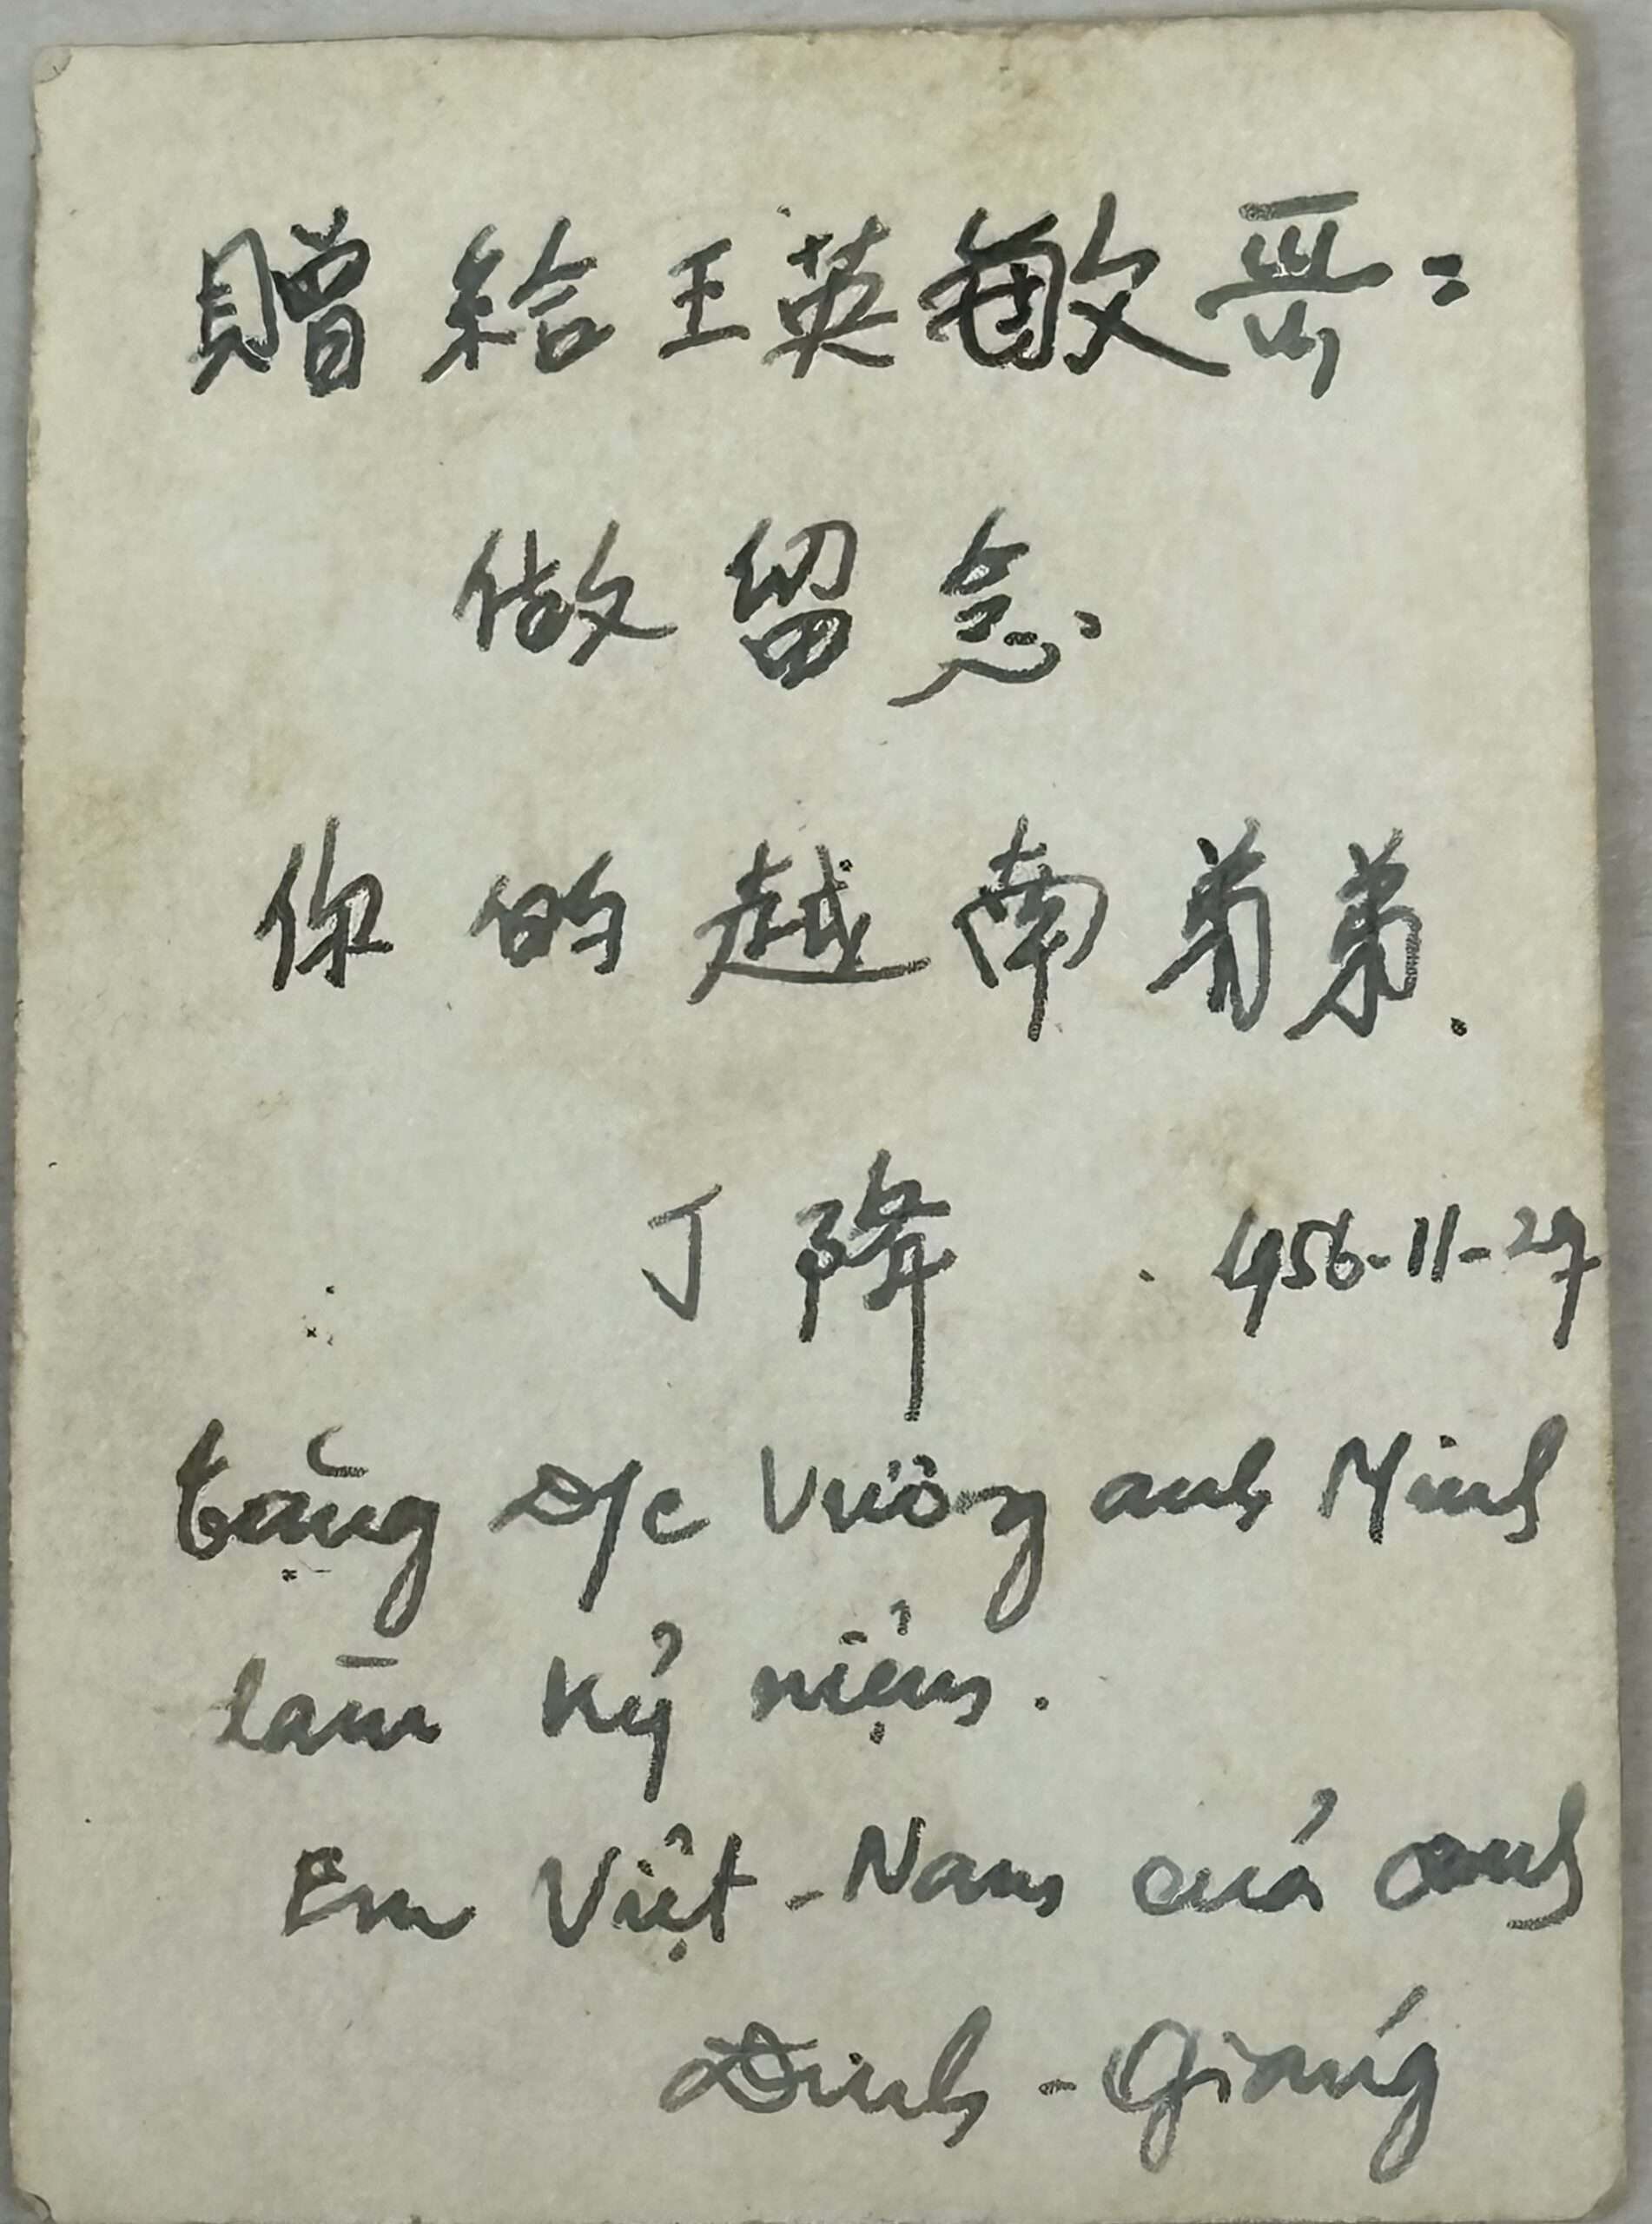 贈給王英敏哥:
做留念
你的越南弟弟.
丁降 1956-11-27
tặng Đ/c Vương anh Minh
làm kỷ niệm.
Em Việt-Nam của anh
Đinh-Giáng